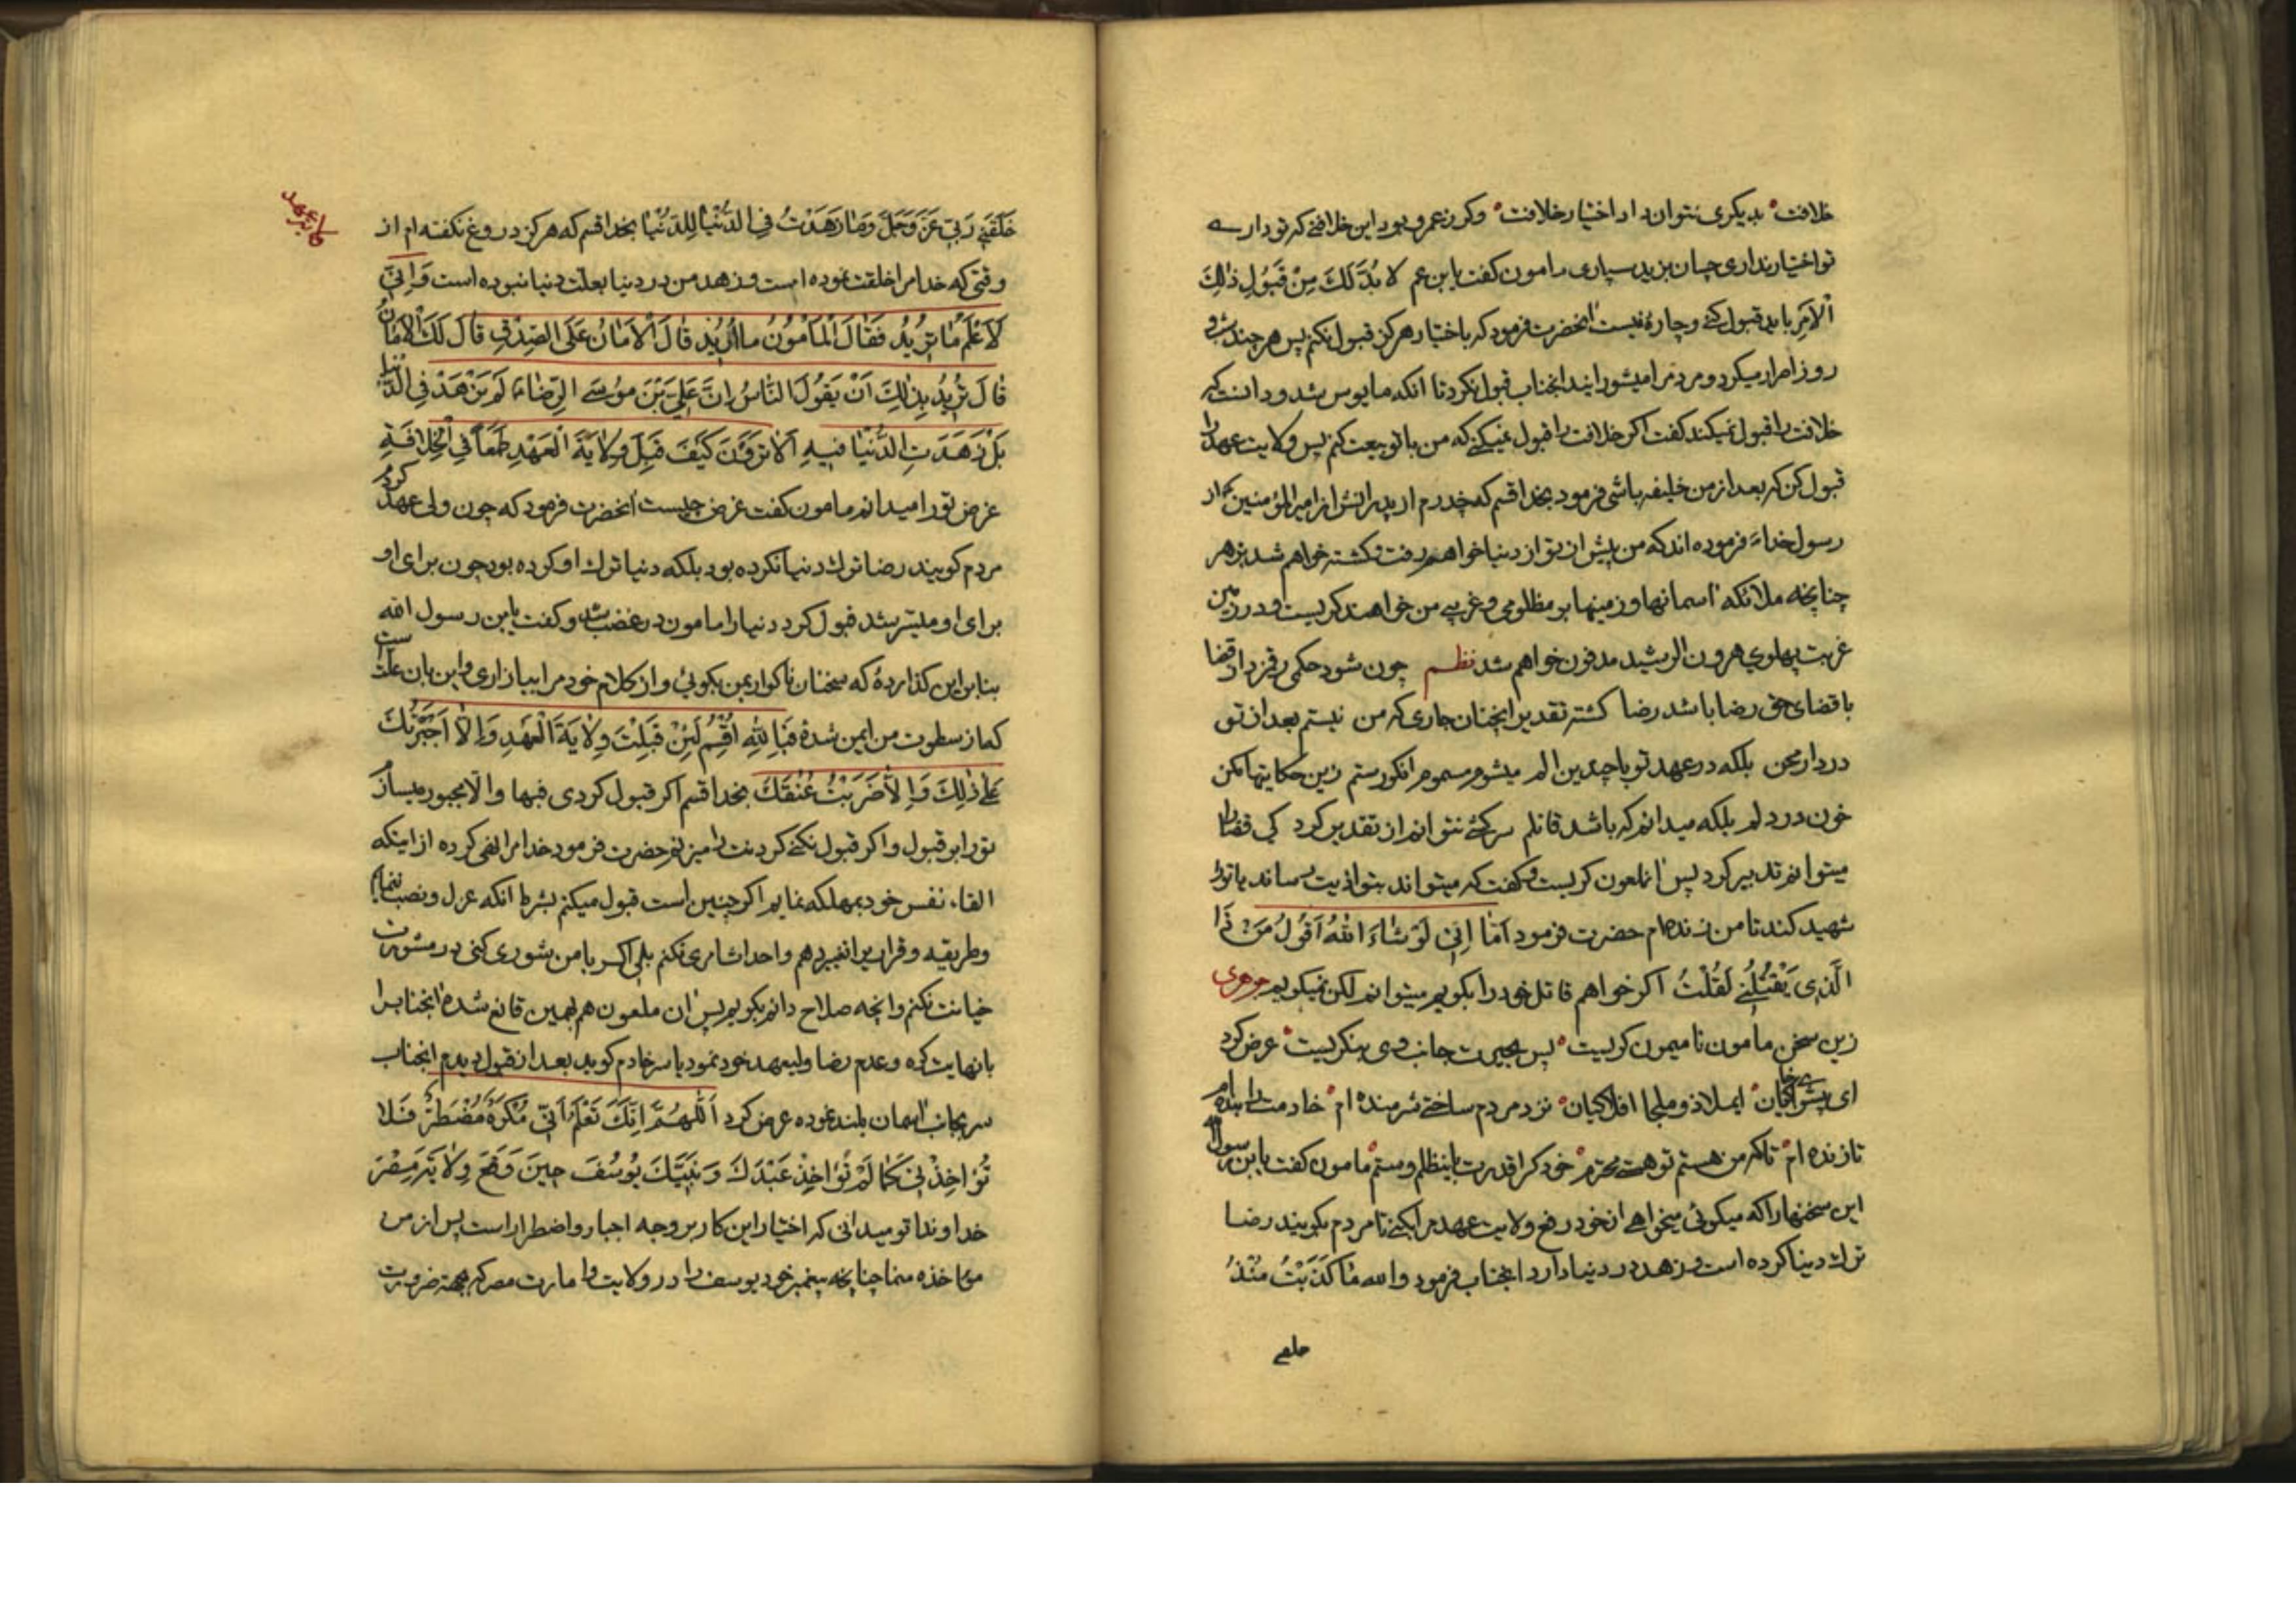 خلافت بدیکری نتوان داد اختیار خلافت وکر زعمرو بود این خلافتی که تو داری
تو اختیار نداری چسان بزید سپاری مامون کفت یابن عم لا بُدَّ لَكَ مِنْ قَبُولِ ذٰلِكَ
الْاَمرِ باید قبول کنی وچارهٔ نیست انحضرت فرمود که باختیار هرکز قبول نکنم پس هر چند
روز اصرار میکرد و مردم را میشورانید انجناب قبول نکرد تا انکه مایوس شد و دانست که
خلافت را قبول نمیکند کفت اکر خلافت را قبول نمیکنی که من با تو بیعت کنم پس ولایت عهد را
قبول کن که بعد از من خلیفه باشی فرمود بخدا قسم که پدرم از پدرانش از امیرالمؤمنین از
رسول خدا فرموده اند که من پیش از تو از دنیا خواهم رفت و کشته خواهم شد بزهر
چنانچه ملائکه اسمانها و زمینها بر مظلومی و غریبی من خواهند کریست و در زمین
غربت پهلوی هرون الرشید مدفون خواهم شد نظم چون شود حکمی رقم زد از قضا
با قضای حق رضا باشد رضا کشته تقدیر انچنان جاری که من نیستم بعد از تو
در دار محن بلکه در عهد تو با چندین الم میشوم مسموم انکور ستم زین حکایتها مکن
خون در دلم بلکه میدانم که باشد قاتلم سرکشی نتوانم از تقدیر کرد کی قضا را
میتوانم تدبیر کرد پس انملعون کریست و کفت که میتواند بتو اذیت رساند یا تو را
شهید کند تا من زنده ام حضرت فرمود اَمّا اِنّی لَوْ شٰاءَ اللهُ اَقُولُ مَنْ ذَا
الَّذِی یَقْتُلُنِی لَقُلْتُ اکر خواهم قاتل خود را بکویم میتوانم لکن نمیکویم جوهری
زین سخن مامون نامیمون کریست پس بحیرت جانب وی بنکریست عرض کرد
ای پیشوای خاکیان ایملاذ و ملجا افلاکیان نزد مردم ساختی شرمنده ام خادمت را بنده ام
تا زنده ام تا که من هستم تو هستی محترم خود کرا قدرت باینظلم و ستم مامون کفت یابن رسول الله
این سخنها را که میکوئی میخواهی از خود رفع ولایت عهد را بکنی تا مردم بکویند رضا
ترك دنیا کرده است و زهد در دنیا دارد انجناب فرمود والله مٰا كَذَبْتُ مُنْذُ
خلقنی
خَلَقَنِی رَبِّی عَزَّ وَجَلَّ وَمٰا زَهَدْتُ فِی الدُّنْیٰا لِلدُّنْیٰا بخدا قسم که هرکز دروغ نکفته ام از
وقتی که خدا مرا خلقت نموده است و زهد من در دنیا بعلت دنیا نبوده است وَاِنّی
لَاَعْلَمُ مٰا تُرِیْدُ فَقٰالَ الْمَأمُونُ مٰا اُرِیْدُ قٰالَ الْاَمٰانُ عَلَی الصِّدْقِ قٰالَ لَكَ الْاَمٰانُ
قٰالَ تُرِیْدُ بِذٰلِكَ اَنْ یَقُولَ النّٰاسُ اِنَّ عَلِیَّ بْنَ مُوسَی الرِّضٰا لَمْ یَزْهَدْ فِی الدُّنْیٰا
بَلْ زَهَدَتِ الدُّنْیٰا فِیهِ اَلٰا تَرَوْنَ کَیْفَ قَبِلَ وِلٰایَةَ الْعَهْدِ طَمَعاً فِی الْخِلٰافَةِ
غرض تو را میدانم مامون کفت غرض چیست انحضرت فرمود که چون ولی عهد کردم
مردم کویند رضا ترك دنیا نکرده بود بلکه دنیا ترك او کرده بود چون برای او
برای او میسّر شد قبول کرد دنیا را مامون در غضب شد و کفت یابن رسول الله
بنا براین کذاردهٔ که سخنان ناکوار بمن بکوئی و از کلام خود مرا بیازاری و این بان علت است
که از سطوت من ایمن شدهٔ فَبِاللهِ اُقْسِمُ لَئِنْ قَبِلْتَ وِلٰایَةَ الْعَهْدِ وَاِلّٰا اَجْبَرْتُكَ
عَلیٰ ذٰلِكَ وَاِلّٰا ضَرَبْتُ عُنُقَكَ بخدا قسم اکر قبول کردی فبها والّا مجبور میسازم
تو را بر قبول و اکر قبول نکنی کردنت را میزنم حضرت فرمود خدا مرا نهی کرده از اینکه
القاء نفس خود بمهلکه نمایم اکر چنین است قبول میکنم بشرط انکه عزل و نصب ننمایم
وطریقه و قرار را تغییر ندهم و احداث امری نکنم بلی اکر با من شوری کنی در مشورت
خیانت نکنم وانچه صلاح دانم بکویم پس ان ملعون هم بهمین قانع شده انجناب را
با نهایت کره و عدم رضا ولیعهد خود نمود یاسر خادم کوید بعد از قبول دیدم انجناب
سر بجانب اسمان بلند نموده عرض کرد اَللّٰهُمَّ اِنَّكَ تَعْلَمُ اَنّی مُکْرَهٌ مُضْطَرٌّ فَلٰا
تُؤٰاخِذْنِی کَمٰا لَمْ تُؤٰاخِذْ عَبْدَكَ وَنَبِیَّكَ یُوسُفَ حِینَ وَقَعَ وِلٰایَةَ مِصْرَ
خداوندا تو میدانی که اختیار این کار بر وجه اجبار و اضطرار است پس از من
مؤاخذه منما چنانچه پیغمبر خود یوسف را در ولایت و امارت مصر که بجهة ضرورت